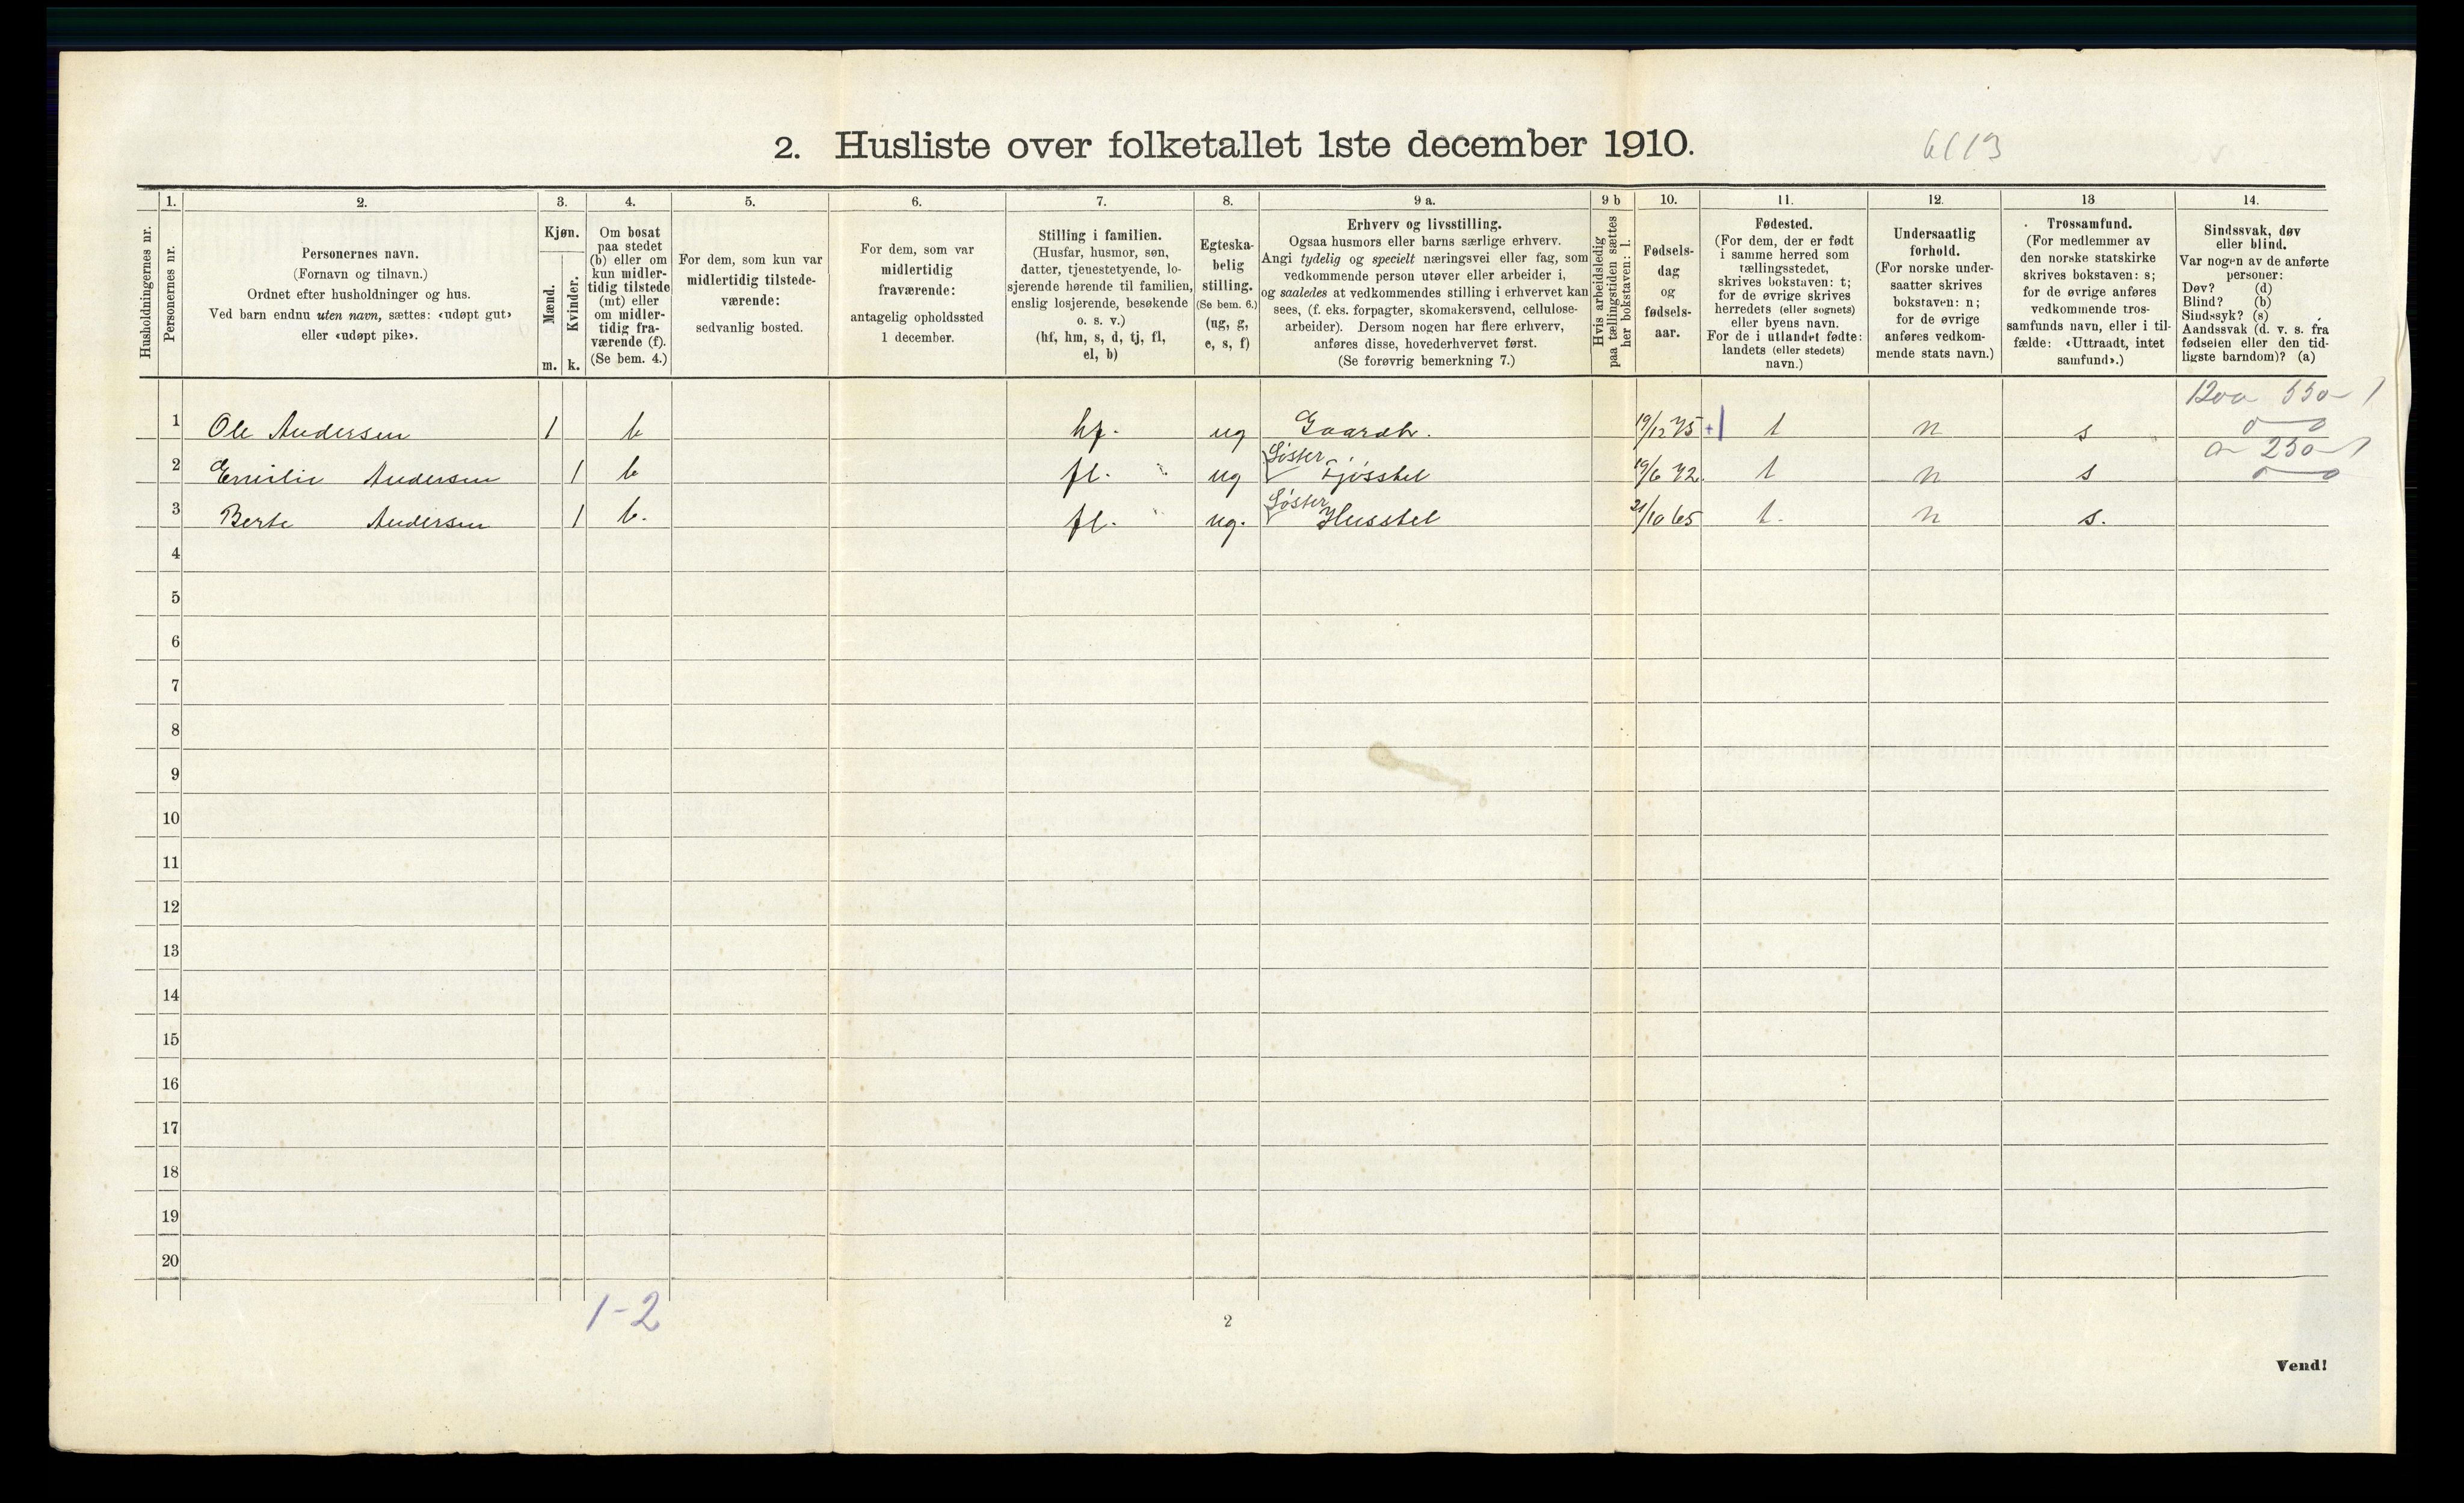 2. Husliste over folketallet 1ste december 1910.
6113
Husholdningernes nr.
1.
Personernes nr.
2.
Personernes navn.
(Fornavn og tilnavn.)
Ordnet efter husholdninger og hus.
Ved barn endnu uten navn, sættes: «udøpt gut»
eller «udøpt pike».
3.
Kjøn.
Mænd.
m.
Kvinder.
k.
4.
Om bosat
paa stedet
(b) eller om
kun midler-
tidig tilstede
(mt) eller
om midler-
tidig fra-
værende (f).
(Se bem. 4.)
5.
For dem, som kun var
midlertidig tilstede-
værende:
sedvanlig bosted.
6.
For dem, som var
midlertidig
fraværende:
antagelig opholdssted
1 december.
7.
Stilling i familien.
(Husfar, husmor, søn,
datter, tjenestetyende, lo-
sjerende hørende til familien,
enslig losjerende, besøkende
o. s. v.)
(hf, hm, s, d, tj, fl,
el, b)
8.
Egteska-
belig
stilling.
(Se bem. 6.)
(ug, g,
e, s, f)
9 a.
Erhverv og livsstilling.
Ogsaa husmors eller barns særlige erhverv.
Angi tydelig og specielt næringsvei eller fag, som
vedkommende person utøver eller arbeider i,
og saaledes at vedkommendes stilling i erhvervet kan
sees, (f. eks. forpagter, skomakersvend, cellulose-
arbeider). Dersom nogen har flere erhverv,
anføres disse, hovederhvervet først.
(Se forøvrig bemerkning 7.)
9 b
Hvis arbeidsledig
paa tællingstiden sættes
her bokstaven: l.
10.
Fødsels-
dag
og
fødsels-
aar.
11.
Fødested.
(For dem, der er født
i samme herred som
tællingsstedet,
skrives bokstaven: t;
for de øvrige skrives
herredets (eller sognets)
eller byens navn.
For de i utlandet fødte:
landets (eller stedets)
navn.)
12.
Undersaatlig
forhold.
(For norske under-
saatter skrives
bokstaven: n;
for de øvrige
anføres vedkom-
mende stats navn.)
13
Trossamfund.
(For medlemmer av
den norske statskirke
skrives bokstaven: s;
for de øvrige anføres
vedkommende tros-
samfunds navn, eller i til-
fælde: «Uttraadt, intet
samfund».)
14.
Sindssvak, døv
eller blind.
Var nogen av de anførte
personer:
Døv? (d)
Blind? (b)
Sindssyk? (s)
Aandssvak (d. v. s. fra
fødselen eller den tid-
ligste barndom)? (a)
1 Ole Andersen 1 b hf. ug Gaardbr. 19/12 75 +1 t n s
2 Emilie Andersen 1 b fl. ug Søster Fjøsstel 19/6 72. t n s
3 Berte Andersen 1 b. fl. ug. Søster Husstel 21/10 65 t. n s.
4
5
6
7
8
9
10
11
12
13
14
15
16
17
18
19
20
1-2
2
Vend!